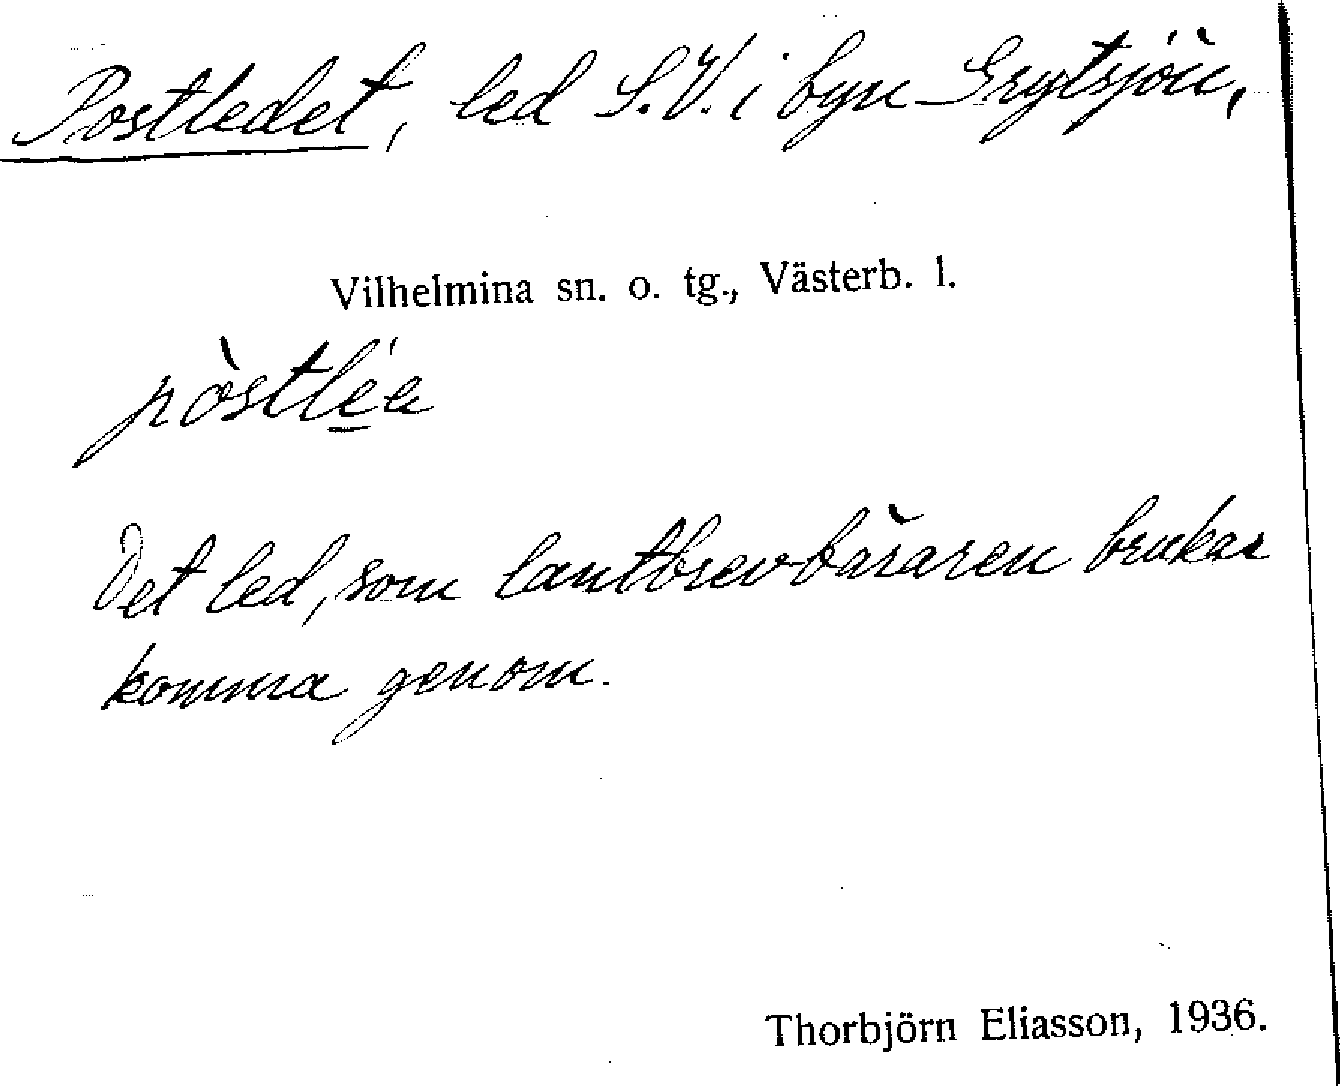 Postledet, led S.V. i byn Grytsjön,
Vilhelmina sn. o. tg., Västerb. l.
pòstlée
Det led, som lantbrevbäraren brukar
komma genom.
Thorbjörn Eliasson, 1936.